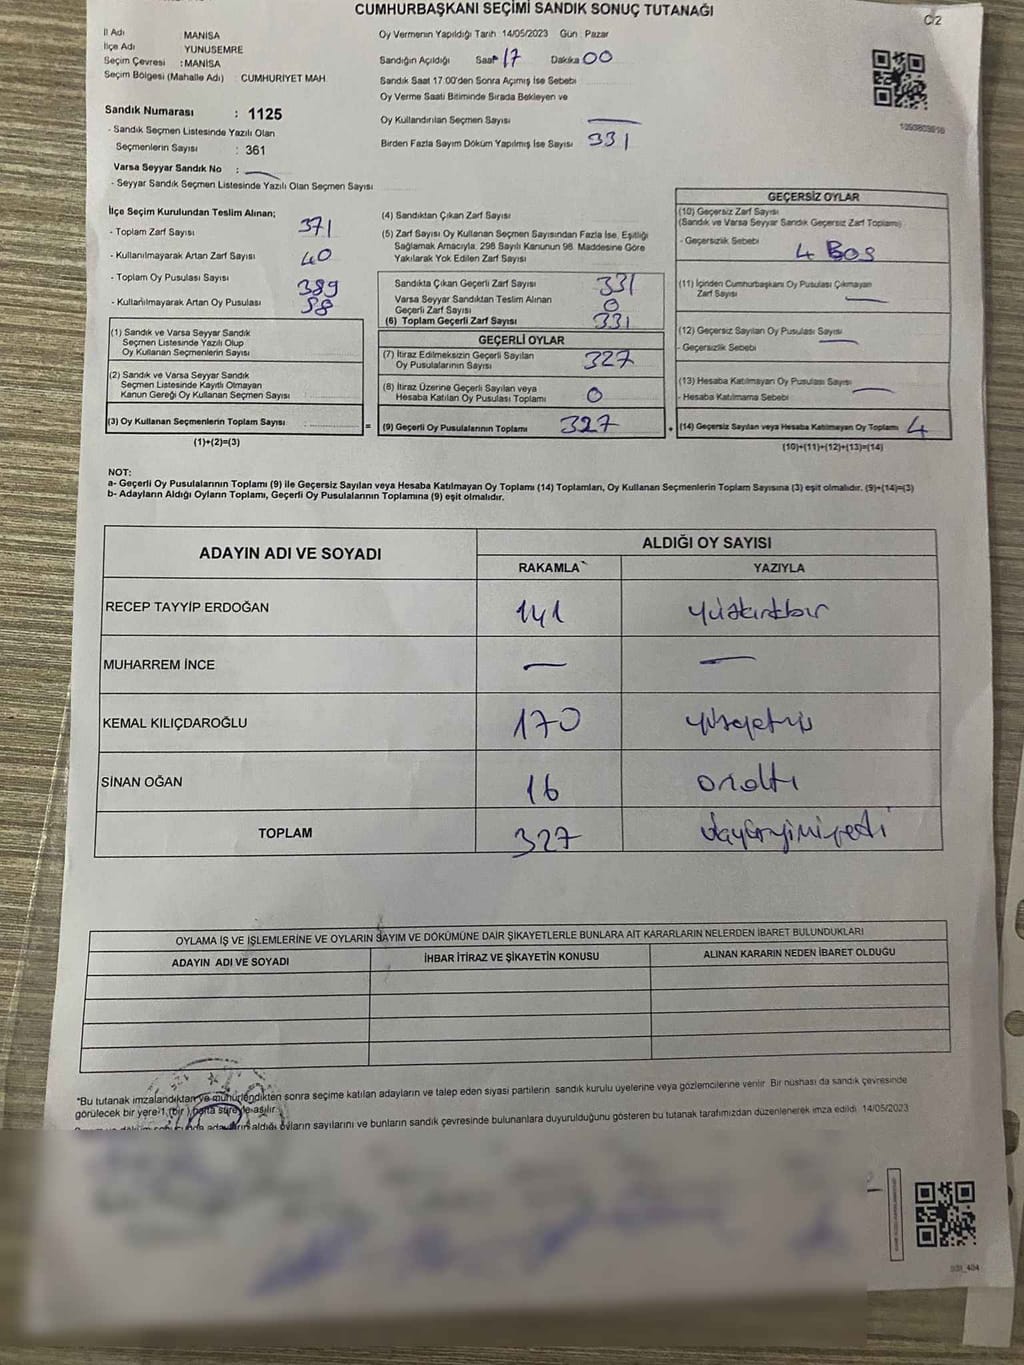 CUMHURBAŞKANI SEÇİMİ SANDIK SONUÇ TUTANAĞI
C/2
İl Adı MANİSA
İlçe Adı YUNUSEMRE
Seçim Çevresi : MANİSA
Seçim Bölgesi (Mahalle Adı) : CUMHURİYET MAH.
Sandık Numarası : 1125
- Sandık Seçmen Listesinde Yazılı Olan
Seçmenlerin Sayısı : 361
Varsa Seyyar Sandık No : —
- Seyyar Sandık Seçmen Listesinde Yazılı Olan Seçmen Sayısı
Oy Vermenin Yapıldığı Tarih : 14/05/2023 Gün : Pazar
Sandığın Açıldığı Saat 17 Dakika 00
Sandık Saat 17:00'den Sonra Açımış İse Sebebi
Oy Verme Saati Bitiminde Sırada Bekleyen ve
Oy Kullandırılan Seçmen Sayısı —
Birden Fazla Sayım Döküm Yapılmış İse Sayısı 331
İlçe Seçim Kurulundan Teslim Alınan;
- Toplam Zarf Sayısı 371
- Kullanılmayarak Artan Zarf Sayısı 40
- Toplam Oy Pusulası Sayısı 389
- Kullanılmayarak Artan Oy Pusulası 58
(1) Sandık ve Varsa Seyyar Sandık
Seçmen Listesinde Yazılı Olup
Oy Kullanan Seçmenlerin Sayısı
(2) Sandık ve Varsa Seyyar Sandık
Seçmen Listesinde Kayıtlı Olmayan
Kanun Gereği Oy Kullanan Seçmen Sayısı
(3) Oy Kullanan Seçmenlerin Toplam Sayısı
=
(1)+(2)=(3)
(4) Sandıktan Çıkan Zarf Sayısı
(5) Zarf Sayısı Oy Kullanan Seçmen Sayısından Fazla İse, Eşitliği
Sağlamak Amacıyla, 298 Sayılı Kanunun 98. Maddesine Göre
Yakılarak Yok Edilen Zarf Sayısı
Sandıkta Çıkan Geçerli Zarf Sayısı 331
Varsa Seyyar Sandıktan Teslim Alınan
Geçerli Zarf Sayısı 0
(6) Toplam Geçerli Zarf Sayısı 331
GEÇERLİ OYLAR
(7) İtiraz Edilmeksizin Geçerli Sayılan
Oy Pusulalarının Sayısı 327
(8) İtiraz Üzerine Geçerli Sayılan veya
Hesaba Katılan Oy Pusulası Toplamı 0
(9) Geçerli Oy Pusulalarının Toplamı 327
+
GEÇERSİZ OYLAR
(10) Geçersiz Zarf Sayısı
(Sandık ve Varsa Seyyar Sandık Geçersiz Zarf Toplamı)
- Geçersizlik Sebebi 4 Boş
(11) İçinden Cumhurbaşkanı Oy Pusulası Çıkmayan
Zarf Sayısı —
(12) Geçersiz Sayılan Oy Pusulası Sayısı —
- Geçersizlik Sebebi
(13) Hesaba Katılmayan Oy Pusulası Sayısı —
- Hesaba Katılmama Sebebi
(14) Geçersiz Sayılan veya Hesaba Katılmayan Oy Toplamı 4
(10)+(11)+(12)+(13)=(14)
NOT:
a- Geçerli Oy Pusulalarının Toplamı (9) ile Geçersiz Sayılan veya Hesaba Katılmayan Oy Toplamı (14) Toplamları, Oy Kullanan Seçmenlerin Toplam Sayısına (3) eşit olmalıdır. (9)+(14)=(3)
b- Adayların Aldığı Oyların Toplamı, Geçerli Oy Pusulalarının Toplamına (9) eşit olmalıdır.
ADAYIN ADI VE SOYADI
ALDIĞI OY SAYISI
RAKAMLA YAZIYLA
RECEP TAYYİP ERDOĞAN 141 yüzkırkbir
MUHARREM İNCE — —
KEMAL KILIÇDAROĞLU 170 yüzyetmiş
SİNAN OĞAN 16 onaltı
TOPLAM 327
OYLAMA İŞ VE İŞLEMLERİNE VE OYLARIN SAYIM VE DÖKÜMÜNE DAİR ŞİKAYETLERLE BUNLARA AİT KARARLARIN NELERDEN İBARET BULUNDUKLARI
ADAYIN ADI VE SOYADI
İHBAR İTİRAZ VE ŞİKAYETİN KONUSU
ALINAN KARARIN NEDEN İBARET OLDUĞU
*Bu tutanak imzalandıktan ve mühürlendikten sonra seçime katılan adayların ve talep eden siyasi partilerin sandık kurulu üyelerine veya gözlemcilerine verilir. Bir nüshası da sandık çevresinde
görülecek bir yere 1 (bir) hafta süreyle asılır.
adayların aldığı oyların sayılarını ve bunların sandık çevresinde bulunanlara duyurulduğunu gösteren bu tutanak tarafımızdan düzenlenerek imza edildi. 14/05/2023